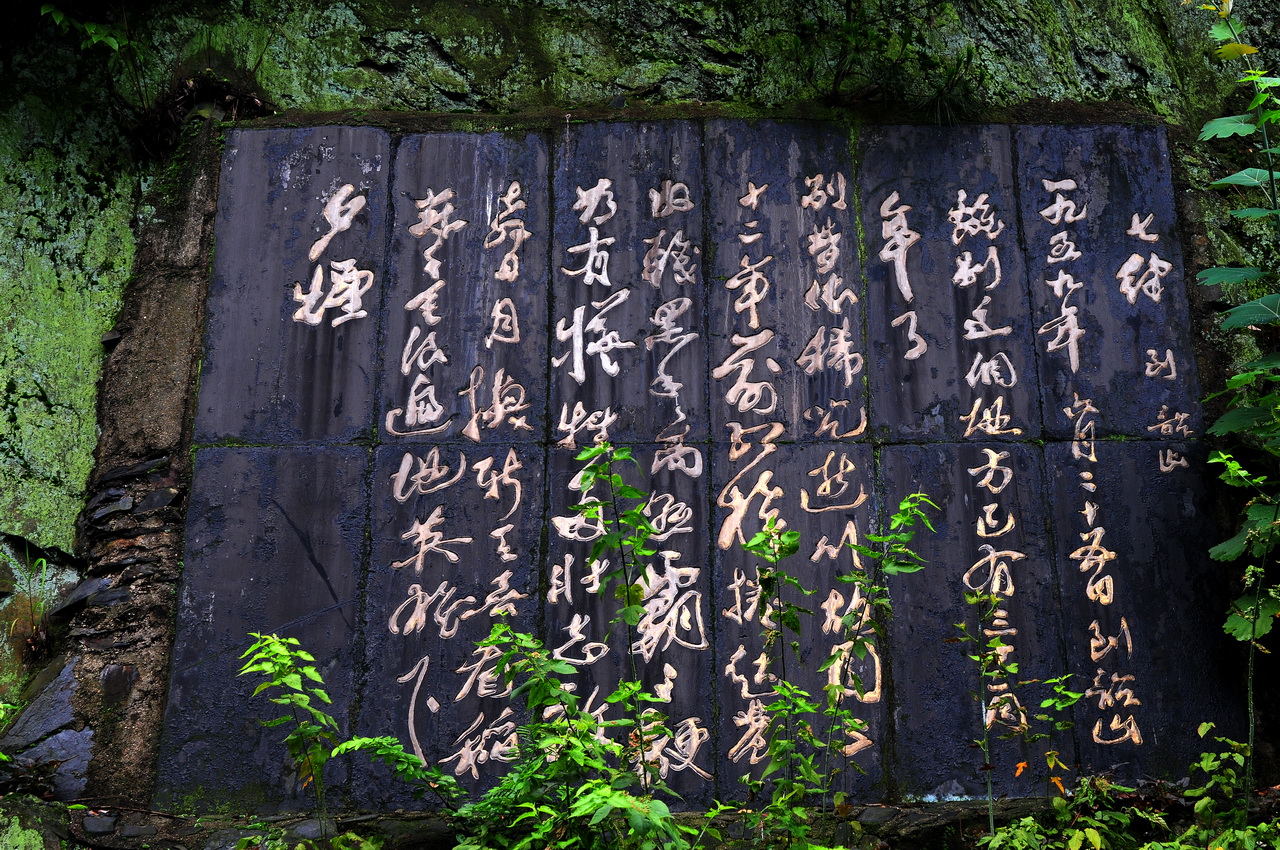 七律 到韶山
一九五九年六月二十五日到韶山
離别這個地方已有三十二周
年了
别夢依稀咒逝川故园三
十二年前红旗捲起农
奴戟黑手高懸霸主鞭
为有犧牲多壮志敢
教日月换新天喜看稻
菽千重浪遍地英雄下
夕煙